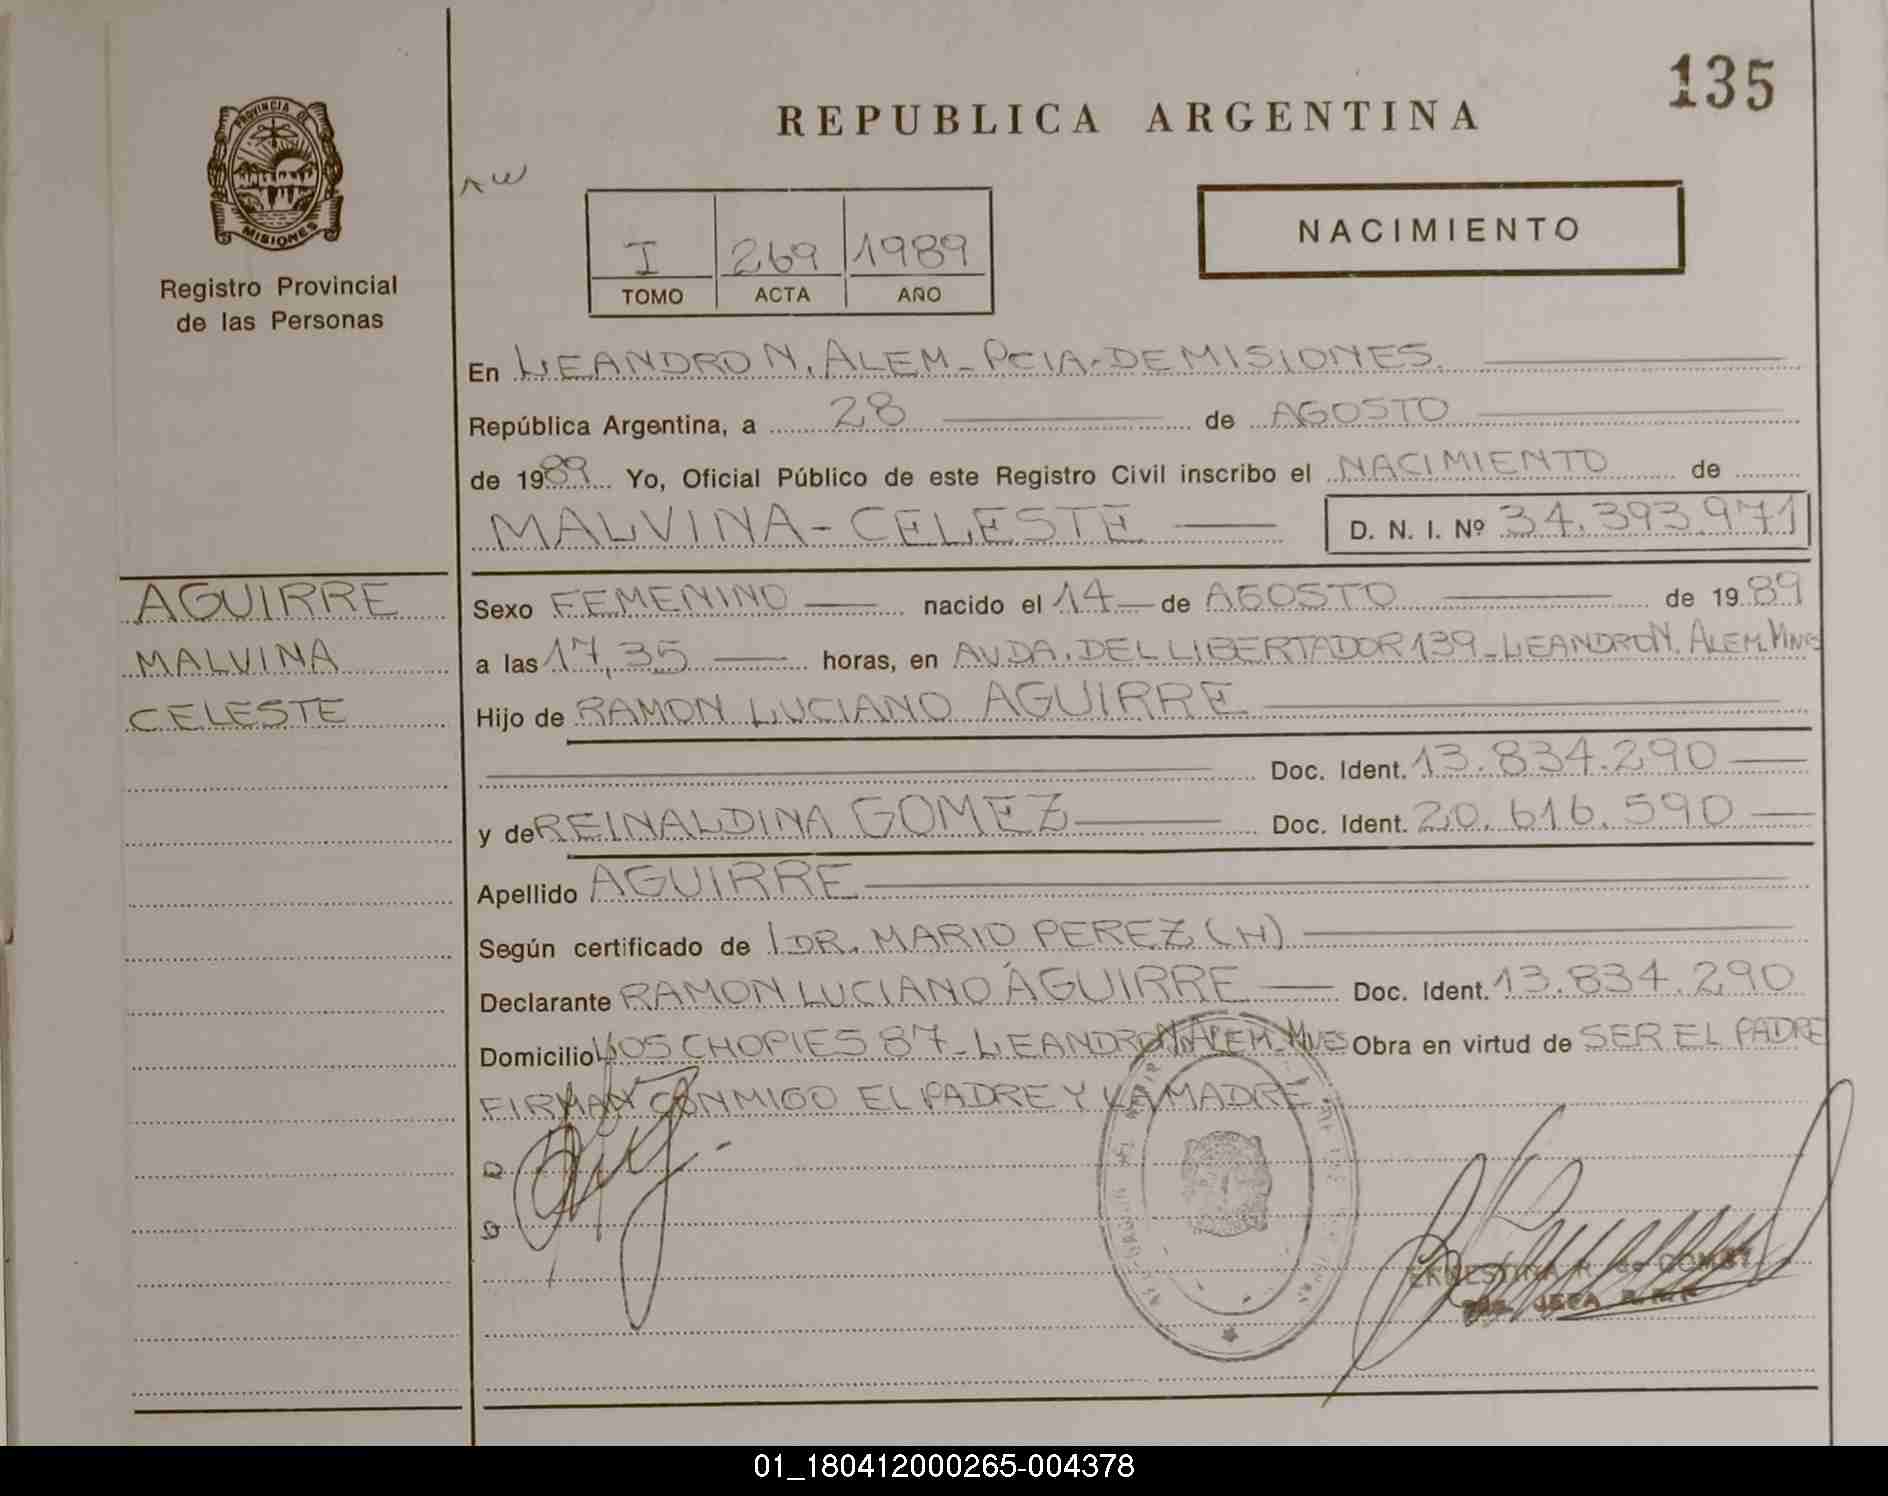 135
REPUBLICA ARGENTINA
PROVINCIA DE
MISIONES
Registro Provincial
de las Personas
I 269 1989
TOMO ACTA AÑO
NACIMIENTO
En LEANDRO N. ALEM - PCIA. DE MISIONES.
República Argentina, a 28 de AGOSTO
de 1989 Yo, Oficial Público de este Registro Civil inscribo el NACIMIENTO de
MALVINA - CELESTE D. N. I. Nº 34.393.971
AGUIRRE
MALVINA
CELESTE
Sexo FEMENINO nacido el 14 de AGOSTO de 1989
a las 17,35 horas, en AVDA. DEL LIBERTADOR 139 - LEANDRO N. ALEM. MNES
Hijo de RAMON LUCIANO AGUIRRE
Doc. Ident. 13.834.290
y de REINALDINA GOMEZ Doc. Ident. 20.616.590
Apellido AGUIRRE
Según certificado de DR. MARIO PEREZ (H)
Declarante RAMON LUCIANO AGUIRRE Doc. Ident. 13.834.290
Domicilio LOS CHOPIES 87 - LEANDRO N. ALEM - MNES Obra en virtud de SER EL PADRE
FIRMAN CONMIGO EL PADRE Y LA MADRE
ERNESTINA R. de
JEFA
01_180412000265-004378